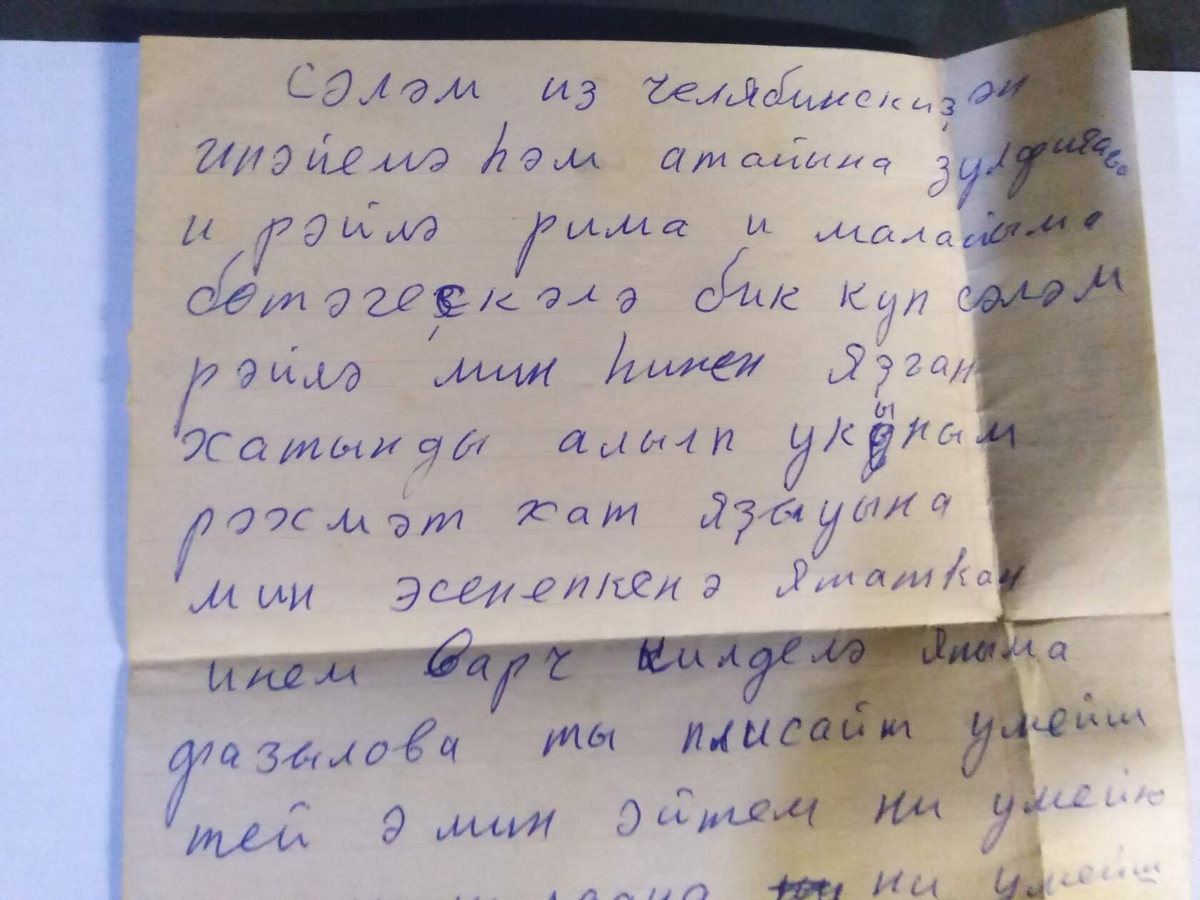 сәләм из челябинскиҙән
инәйемә һәм атайына ҙулфияга
и рәйлә рима и малайыма
бөтәгеҙкәлә бик куп сәләм
рәйлә мин һинен яҙган
хатынды алылп укыным
рәхмәт хат яҙыуына
мин әсенепкенә ятаткан
инем варч килделә яныма
фазылова ты писайт умейш
тей ә мин әйтем ни умейю
ни умейш